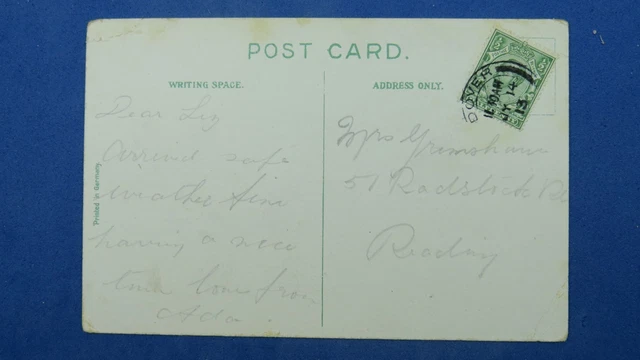 POST CARD.
WRITING SPACE.
ADDRESS ONLY.
Printed in Germany.
DOVER
13
Dear Liz
Arrived safe
weather fine
having a nice
time love from
Ada.
Mrs Grimshaw
51 Radstock
Reading